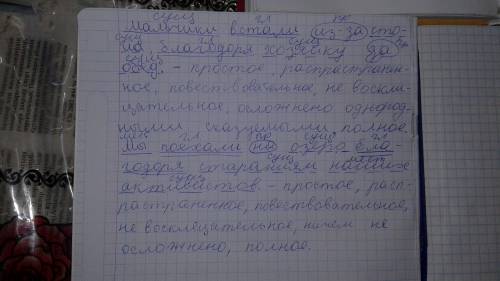 сущ гл пр
Мальчики встали из-за сто-
сущ гл сущ пр
ла, благодаря хозяйку за
сущ
обед. - простое, распространен-
ное, повествовательное, не воскли-
цательное, осложнено однород-
ными сказуемыми, полное.
мест гл пр сущ гл
Мы поехали на озеро бла-
сущ мест
годаря стараниям наших
сущ
активистов. - простое, расп-
ространенное, повествовательное,
не восклецательное, ничем не
осложнено, полное.